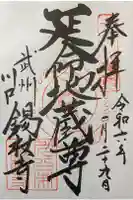 奉拝
令和六年 月二十九日
地蔵尊
武州
川口
錫杖寺